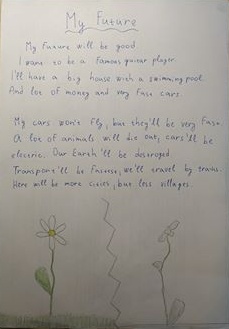 My Future
My Future will be good
I want to be a famous guitar player
I'll have a big house with a swimming pool.
And lot of money and very fast cars.
My cars won't fly, but they'll be very fast.
A lot of animals will die out, cars'll be
electric. Our Earth'll be destroyed.
Transport'll be fastest, we'll travel by trains.
Here will be more cities, but less villages.